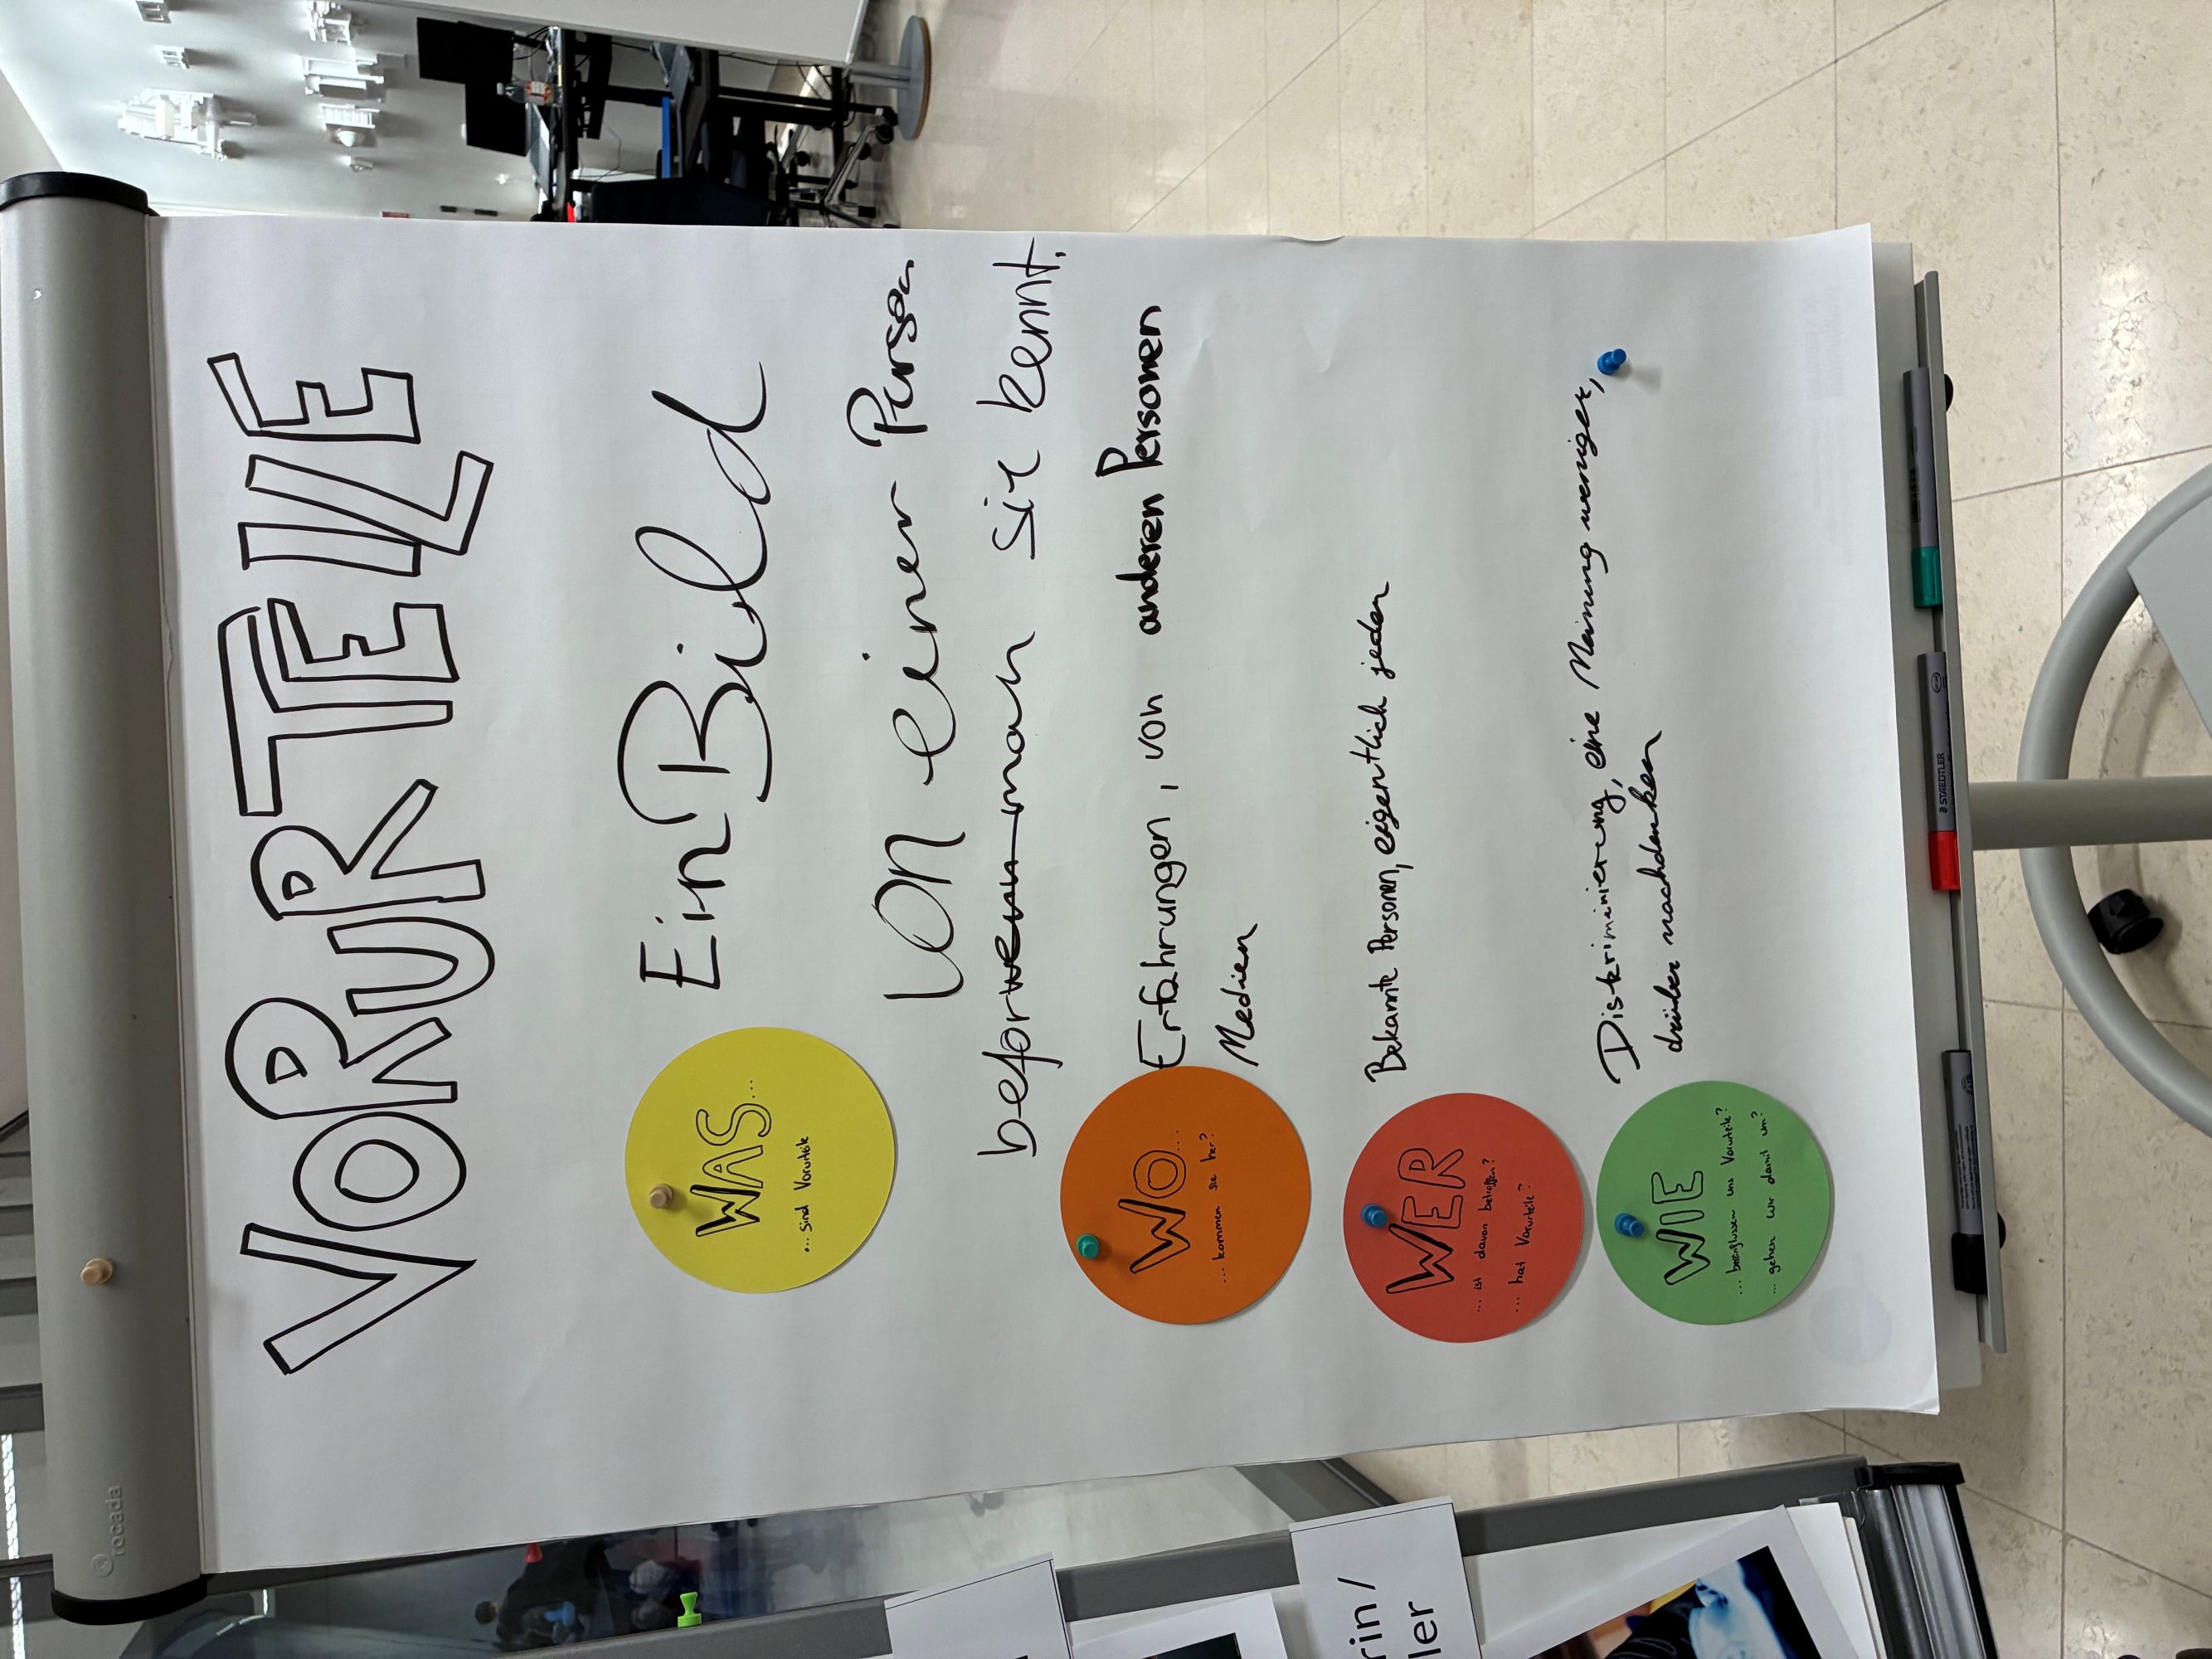 VORURTEILE
WAS...
... sind Vorurteile
Ein Bild
von einer Person
befor wenn man sie kennt.
WO...
... kommen sie her?
Erfahrungen, von anderen Personen
Medien
WER
... ist davon betroffen?
... hat Vorurteile?
Bekannte Personen, eigentlich jeder
WIE
... beeinflussen uns Vorurteile?
... gehen wir damit um?
Diskriminierung, eine Meinung weniger,
drüber nachdenken
rocada
STAEDTLER
rin/
ler